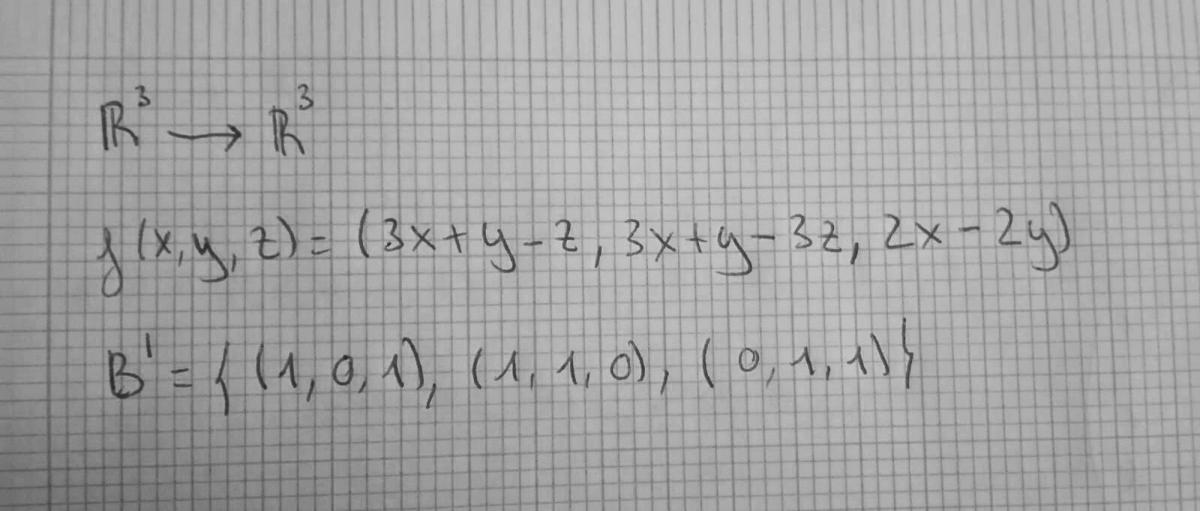 ℝ³ → ℝ³
f(x,y,z) = (3x+y-z, 3x+y-3z, 2x-2y)
B' = {(1,0,1), (1,1,0), (0,1,1)}